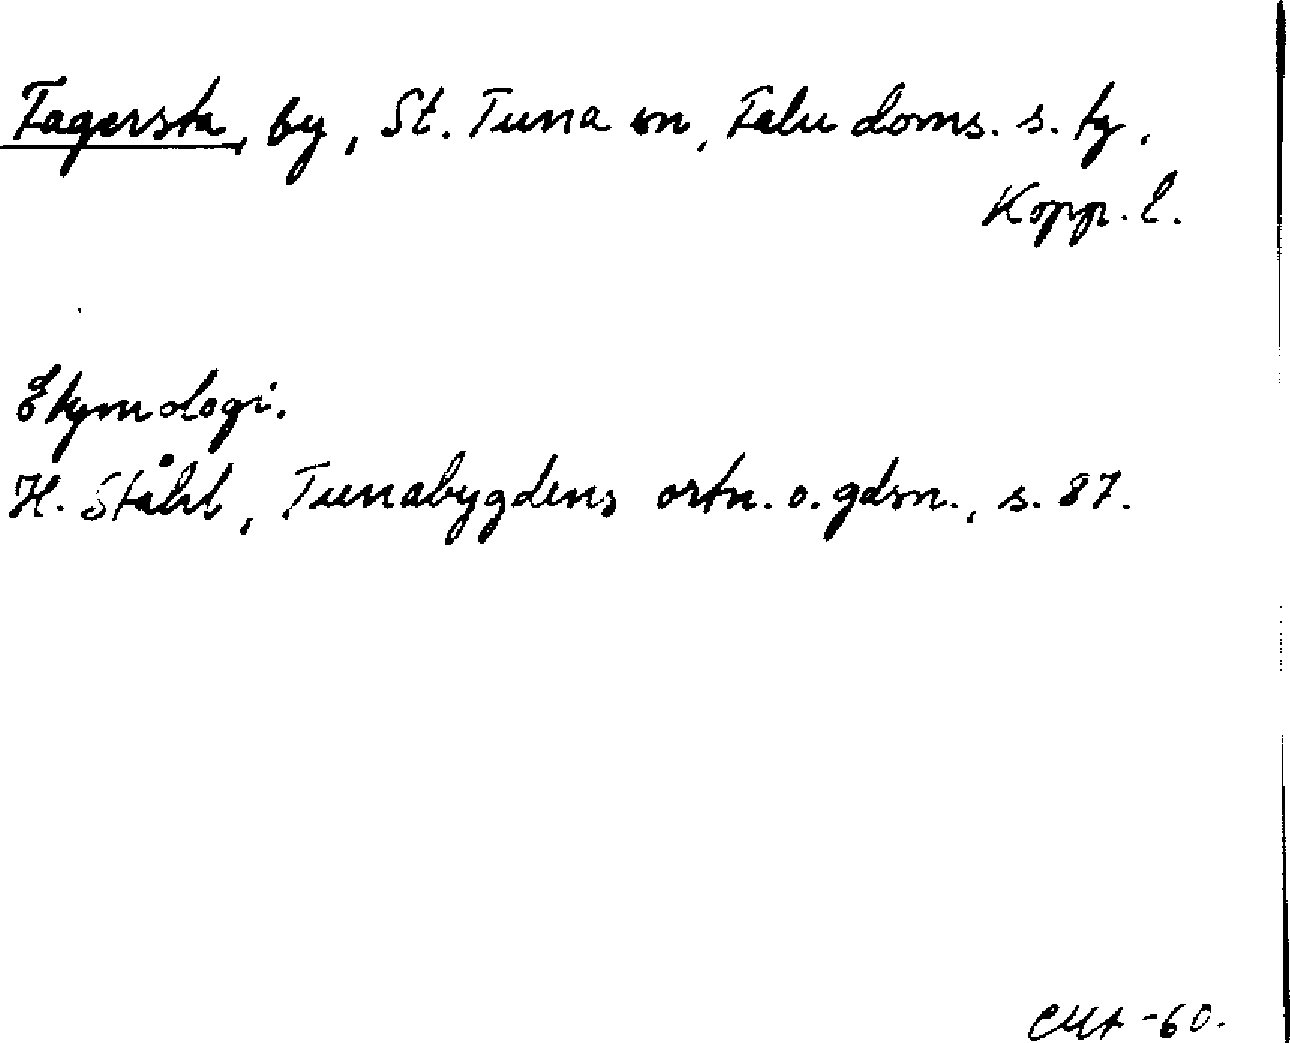 Fagersta, by, St. Tuna sn, Falu doms. s. tg,
Kopp. l.
Etymologi.
H. Ståhl, Tunabygdens ortn. o. gdsn., s. 87.
-60.